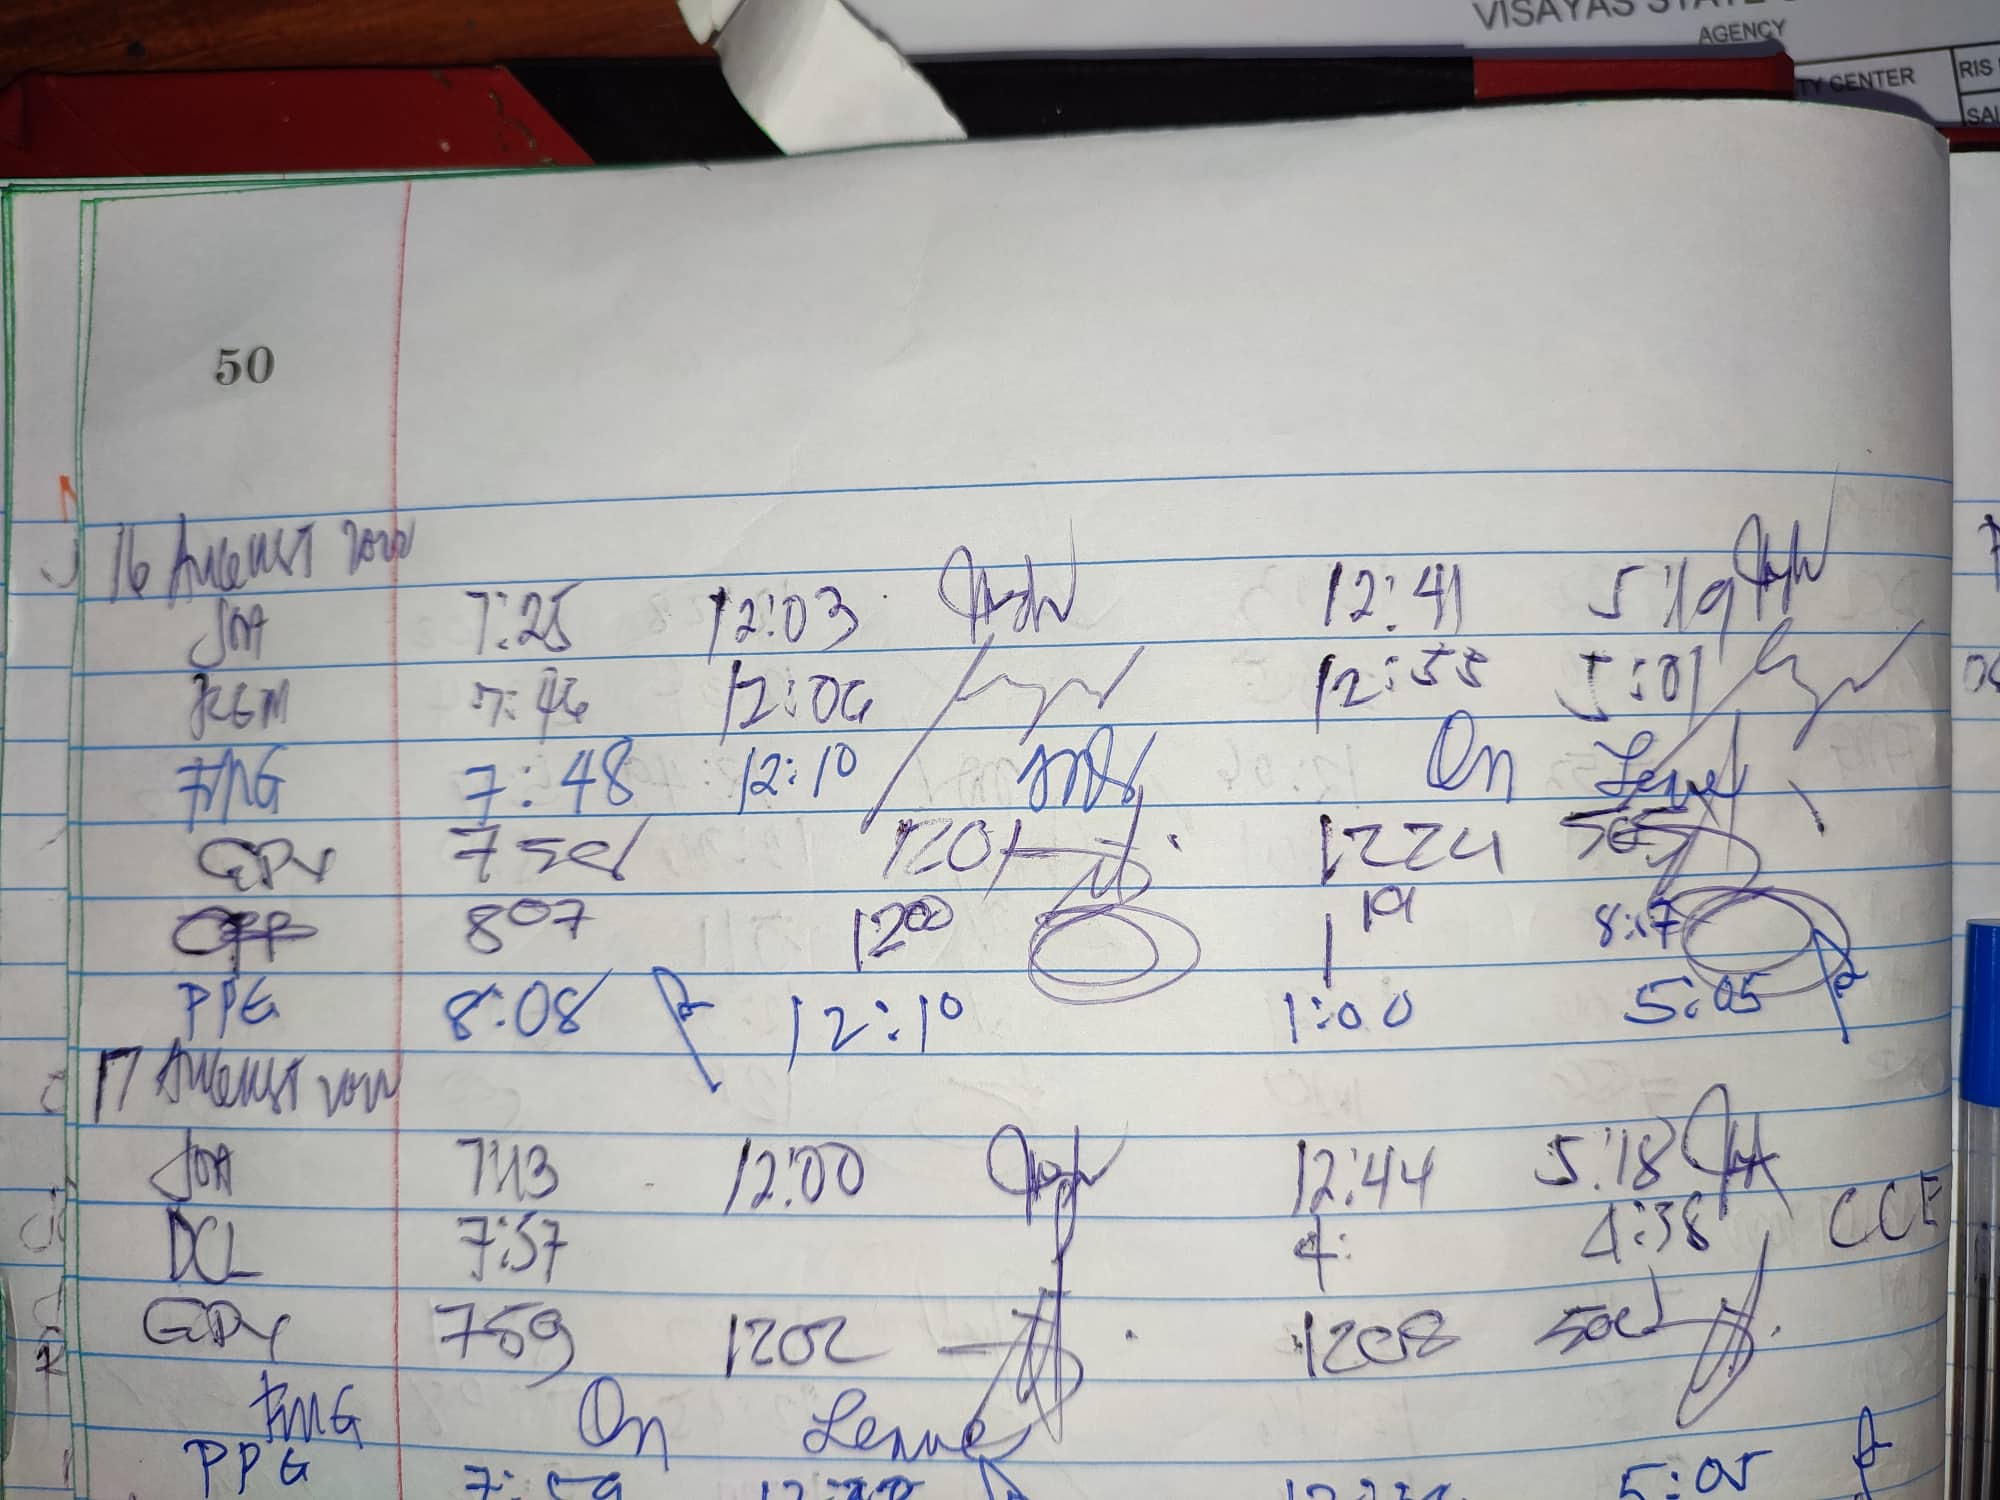 VISAYAS STATE
AGENCY
TY CENTER
RIS
SAL
50
16 August 2022
JOA 7:25 12:03 12:41 5:19
KGM 7:46 12:06 12:55 5:01
FMG 7:48 12:10 On Leave
GDY 7 12 01 12 24 505
8 07 12 00 1 19 8:17
PPG 8:08 12:10 1:00 5:05
17 August 2022
JOA 7:13 12:00 12:44 5:18
DCL 7:57 4: 4:38 CCE
GDY 759 1202 1208
FMG On Leave
PPG 7:59 5:05